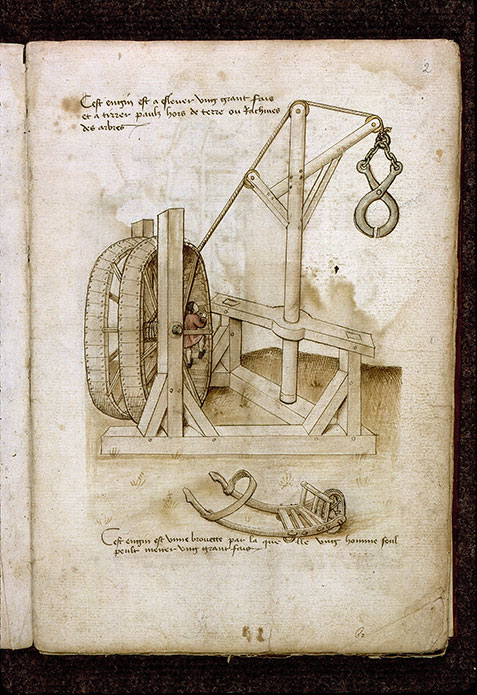 2
Cest engin est a eslever ung grant fais
et a tirrer paulz hors de terre ou Rachines
des arbres
Cest engin est une brouette par la que elle ung homme seul
peult mener ung grant fais